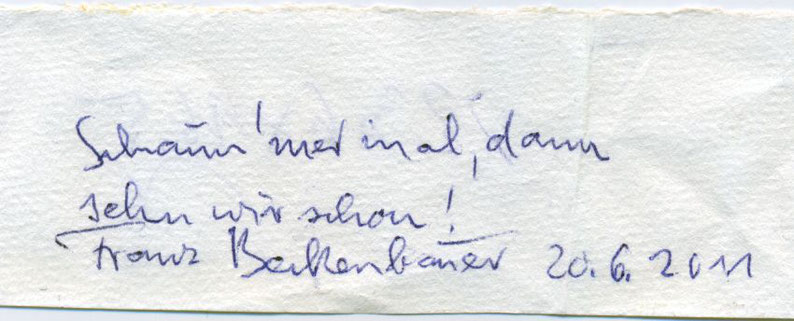 Schaun' mer mal, dann
sehn wir schon!
Franz Beckenbauer 20.6.2011